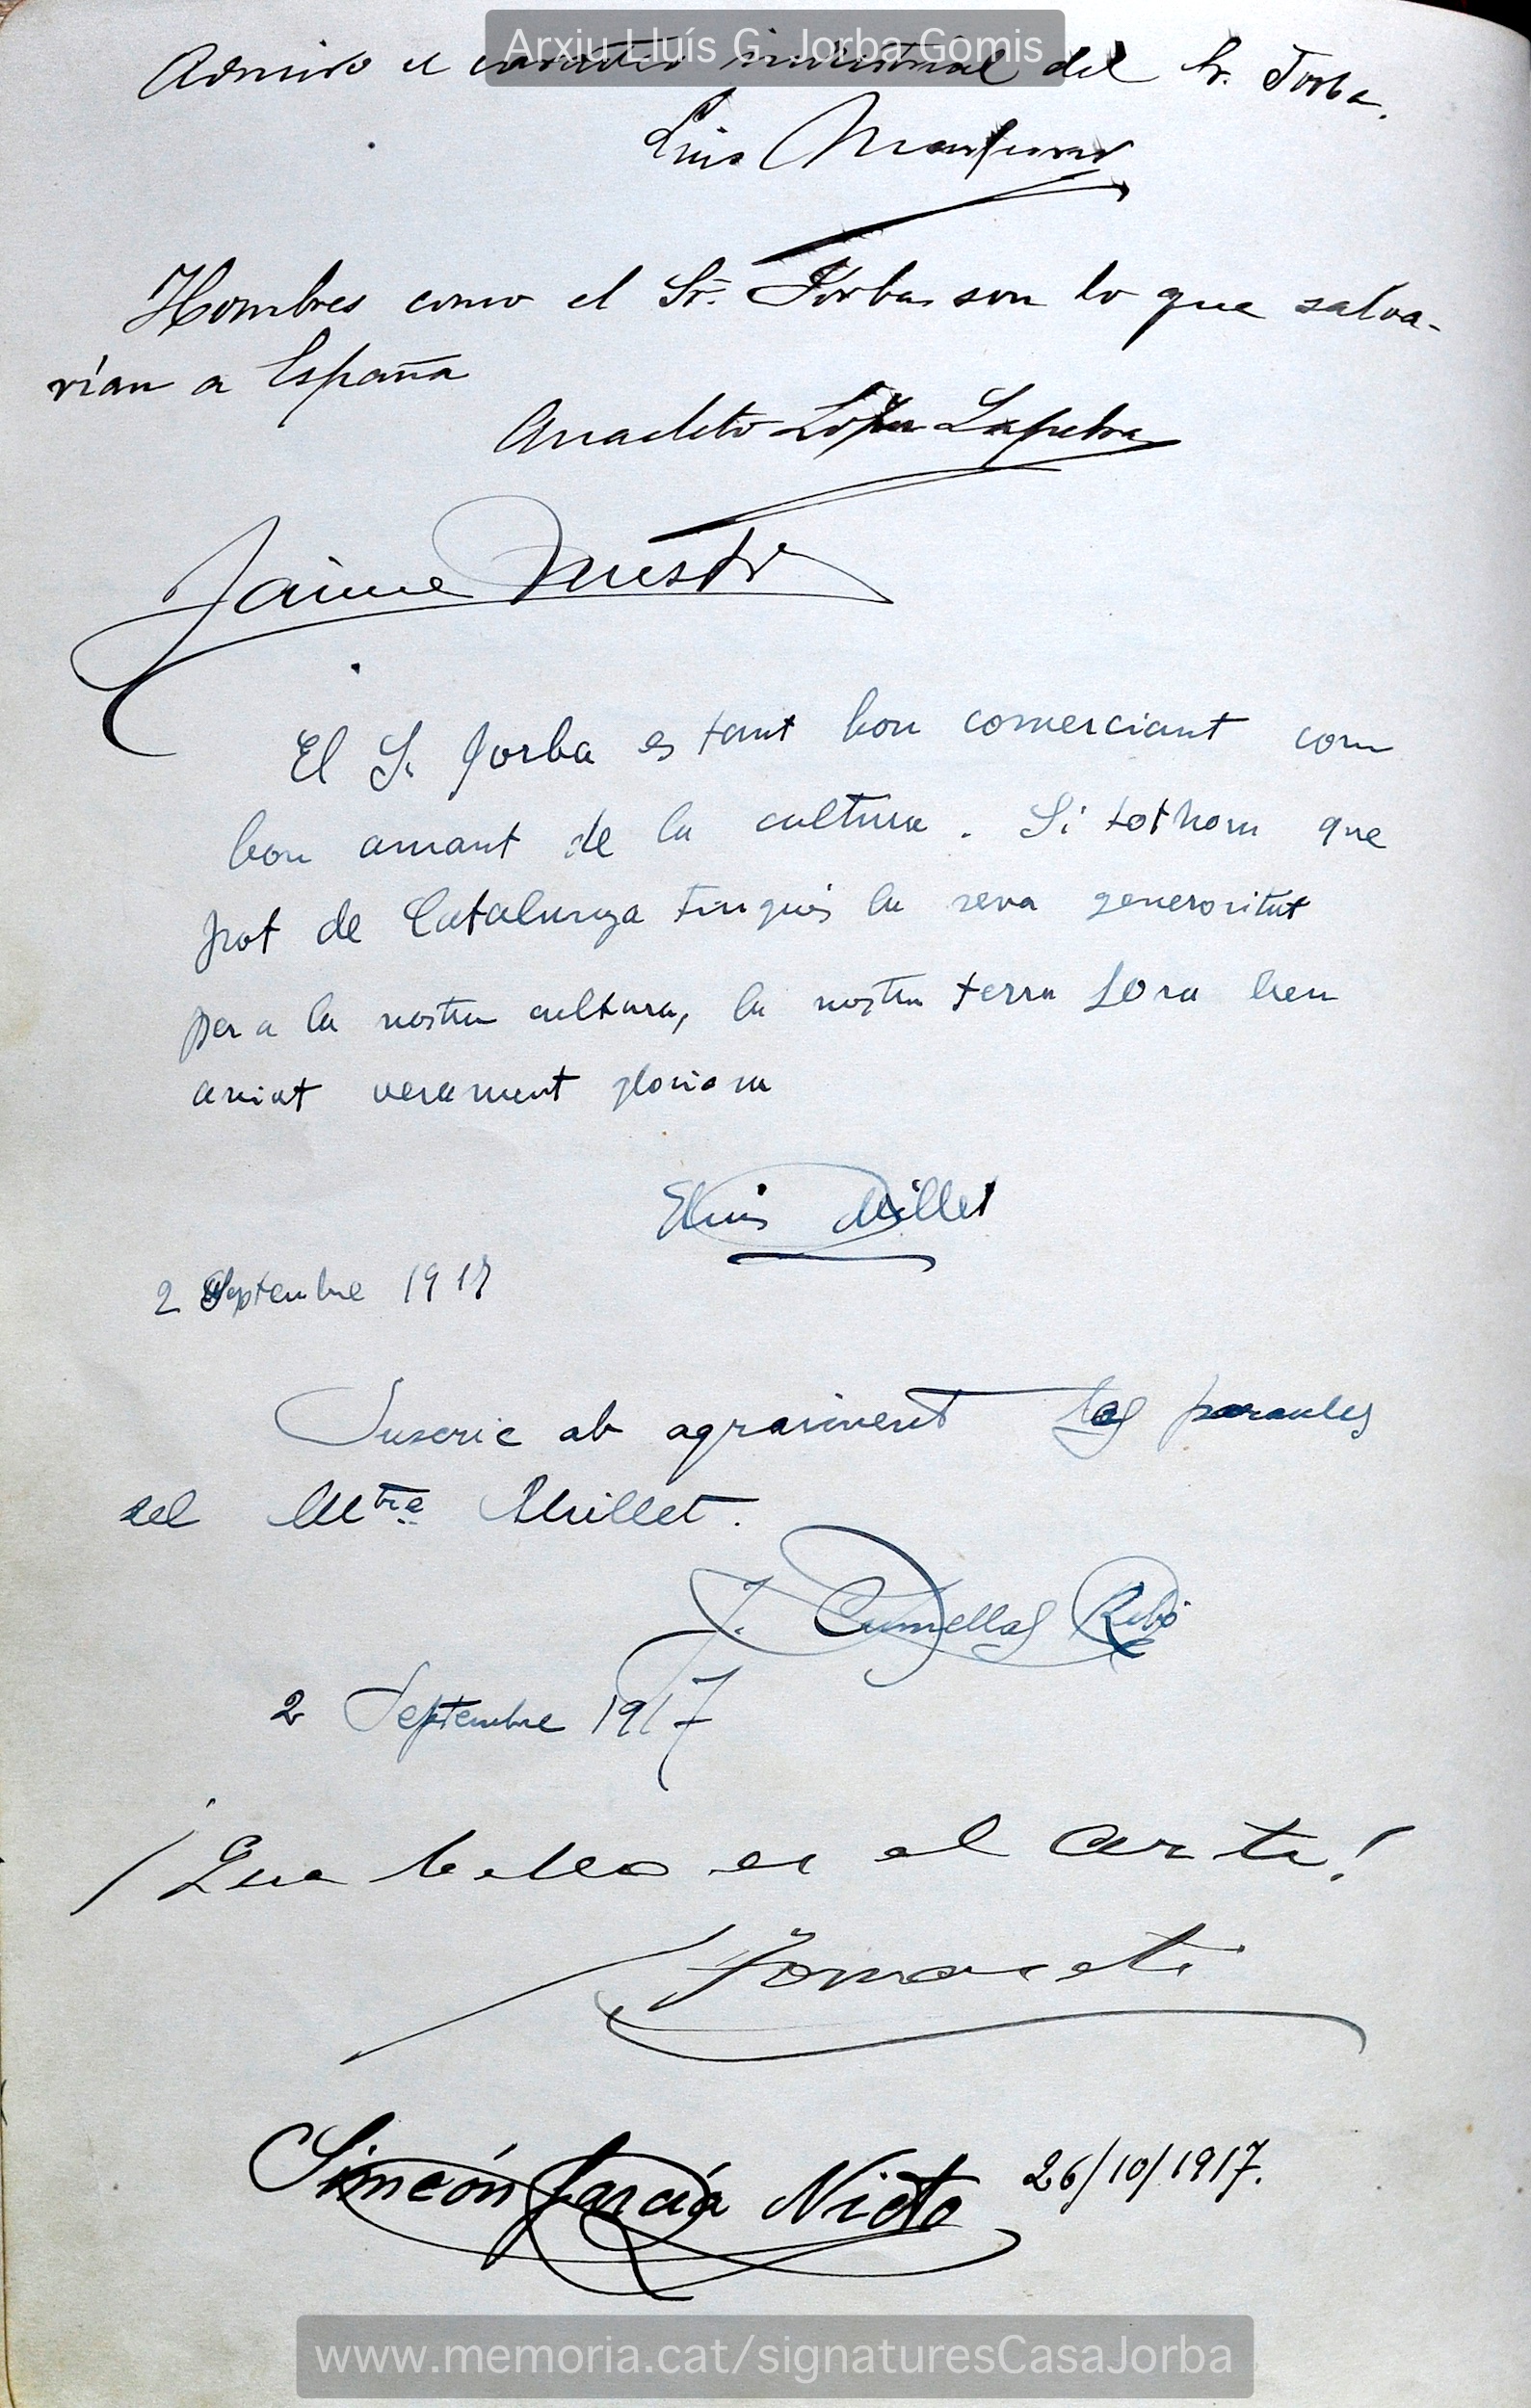 Arxiu Lluís G. Jorba Gomis
Admiro el caracter industrial del Sr. Jorba.
Luis
Hombres como el Sr. Jorba son lo que salva-
rían a España
Anacleto López Lapetra
Jaime Mestr
El Sr Jorba es tant bon comerciant com
bon amant de la cultura. Si tothom que
pot de Catalunya tingués la seva generositat
per a la nostra cultura, la nostra terra fora ben
aviat verament gloriosa
Lluis Millet
2 Septembre 1917
Suscric ab agraiment las paraules
del Mtre Millet.
J. Cumellas Ribó
2 Septembre 1917
¡Que bello es el arte!
Simeón García Nieto 26/10/1917.
www.memoria.cat/signaturesCasaJorba